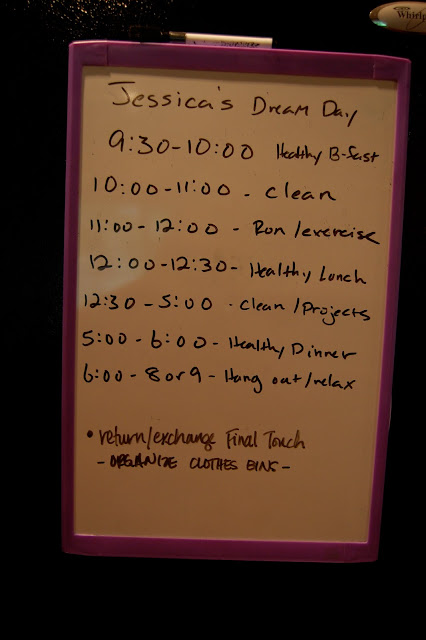 Whirlp
Jessica's Dream Day
9:30-10:00 Healthy B-fast
10:00-11:00 - clean
11:00 - 12:00 - Run/exercise
12:00-12:30- Healthy Lunch
12:30 - 5:00 - clean/Projects
5:00 - 6:00 - Healthy Dinner
6:00 - 8 or 9 - Hang out/relax
• return/exchange Final Touch
- ORGANIZE CLOTHES BINS -